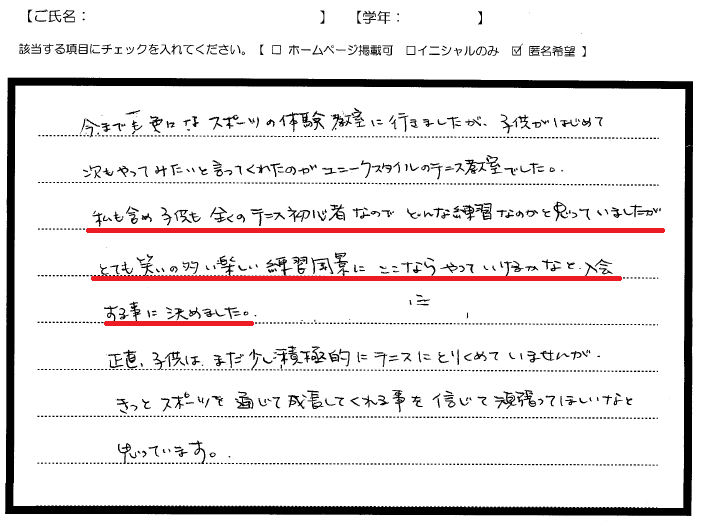 【ご氏名： 】 【学年： 】
該当する項目にチェックを入れてください。【 □ ホームページ掲載可 □イニシャルのみ ☑ 匿名希望 】
今までも色々なスポーツの体験教室に行きましたが、子供がはじめて
次もやってみたいと言ってくれたのがユニークスタイルのテニス教室でした。
私も含め子供も全くのテニス初心者なのでどんな練習なのかと思っていましたが
とても笑いの多い楽しい練習風景にここならやっていけるかなと、入会
する事に決めました。
正直、子供は、まだ少し積極的にテニスにとりくめていませんが、
きっとスポーツを通じて成長してくれる事を信じて頑張ってほしいなと
思っています。